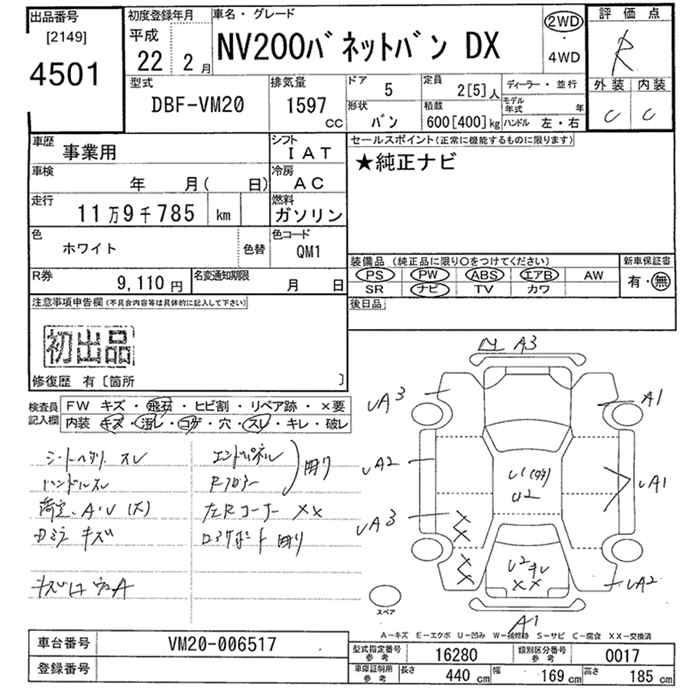 出品番号
[2149]
4501
初度登録年月
平成
22 2月
車名・グレード
NV200バネットバン DX
2WD
・
4WD
評価点
R
外装 内装
C C
型式
DBF-VM20
排気量
1597
CC
ドア
5
定員
2[5]人
ディーラー・並行
形状
バン
積載
600[400]kg
モデル年式 年
ハンドル 左・右
車歴
事業用
シフト
IAT
車検
年 月( 日)
冷房
AC
走行
11万9千785 km
燃料
ガソリン
色
ホワイト
色替
色コード
QM1
R券
9,110円
名変通知期限
月 日
セールスポイント(正常に機能するものに限ります)
★純正ナビ
装備品 (純正品に限り○をつけてください)
PS PW ABS エアB AW
SR ナビ TV カワ
新車保証書
有・無
後日品
注意事項申告欄(不具合内容等は具体的に記入して下さい)
初出品
修復歴 有〔箇所 〕
検査員
記入欄
FW キズ・飛石・ヒビ割・リペア跡・×要
内装 キズ・汚レ・コゲ・穴・スレ・キレ・破レ
ハンドルスレ
荷室、A・V(大)
キズ
エンドパネル
Rフロアー
曲り
左Rコーナー XX
曲り
A3
UA3
A1
UA2
U1
U2
UA1
UA3
XX
XX
U2
XX
UA2
A1
スペア
A-キズ E-エクボ U-凹み W-補修跡 S-サビ C-腐食 XX-交換済
車台番号
VM20-006517
登録番号
型式指定番号
参考
16280
類別区分番号
参考
0017
車庫証明用
参考
長さ 440 cm
幅 169 cm
高さ 185 cm